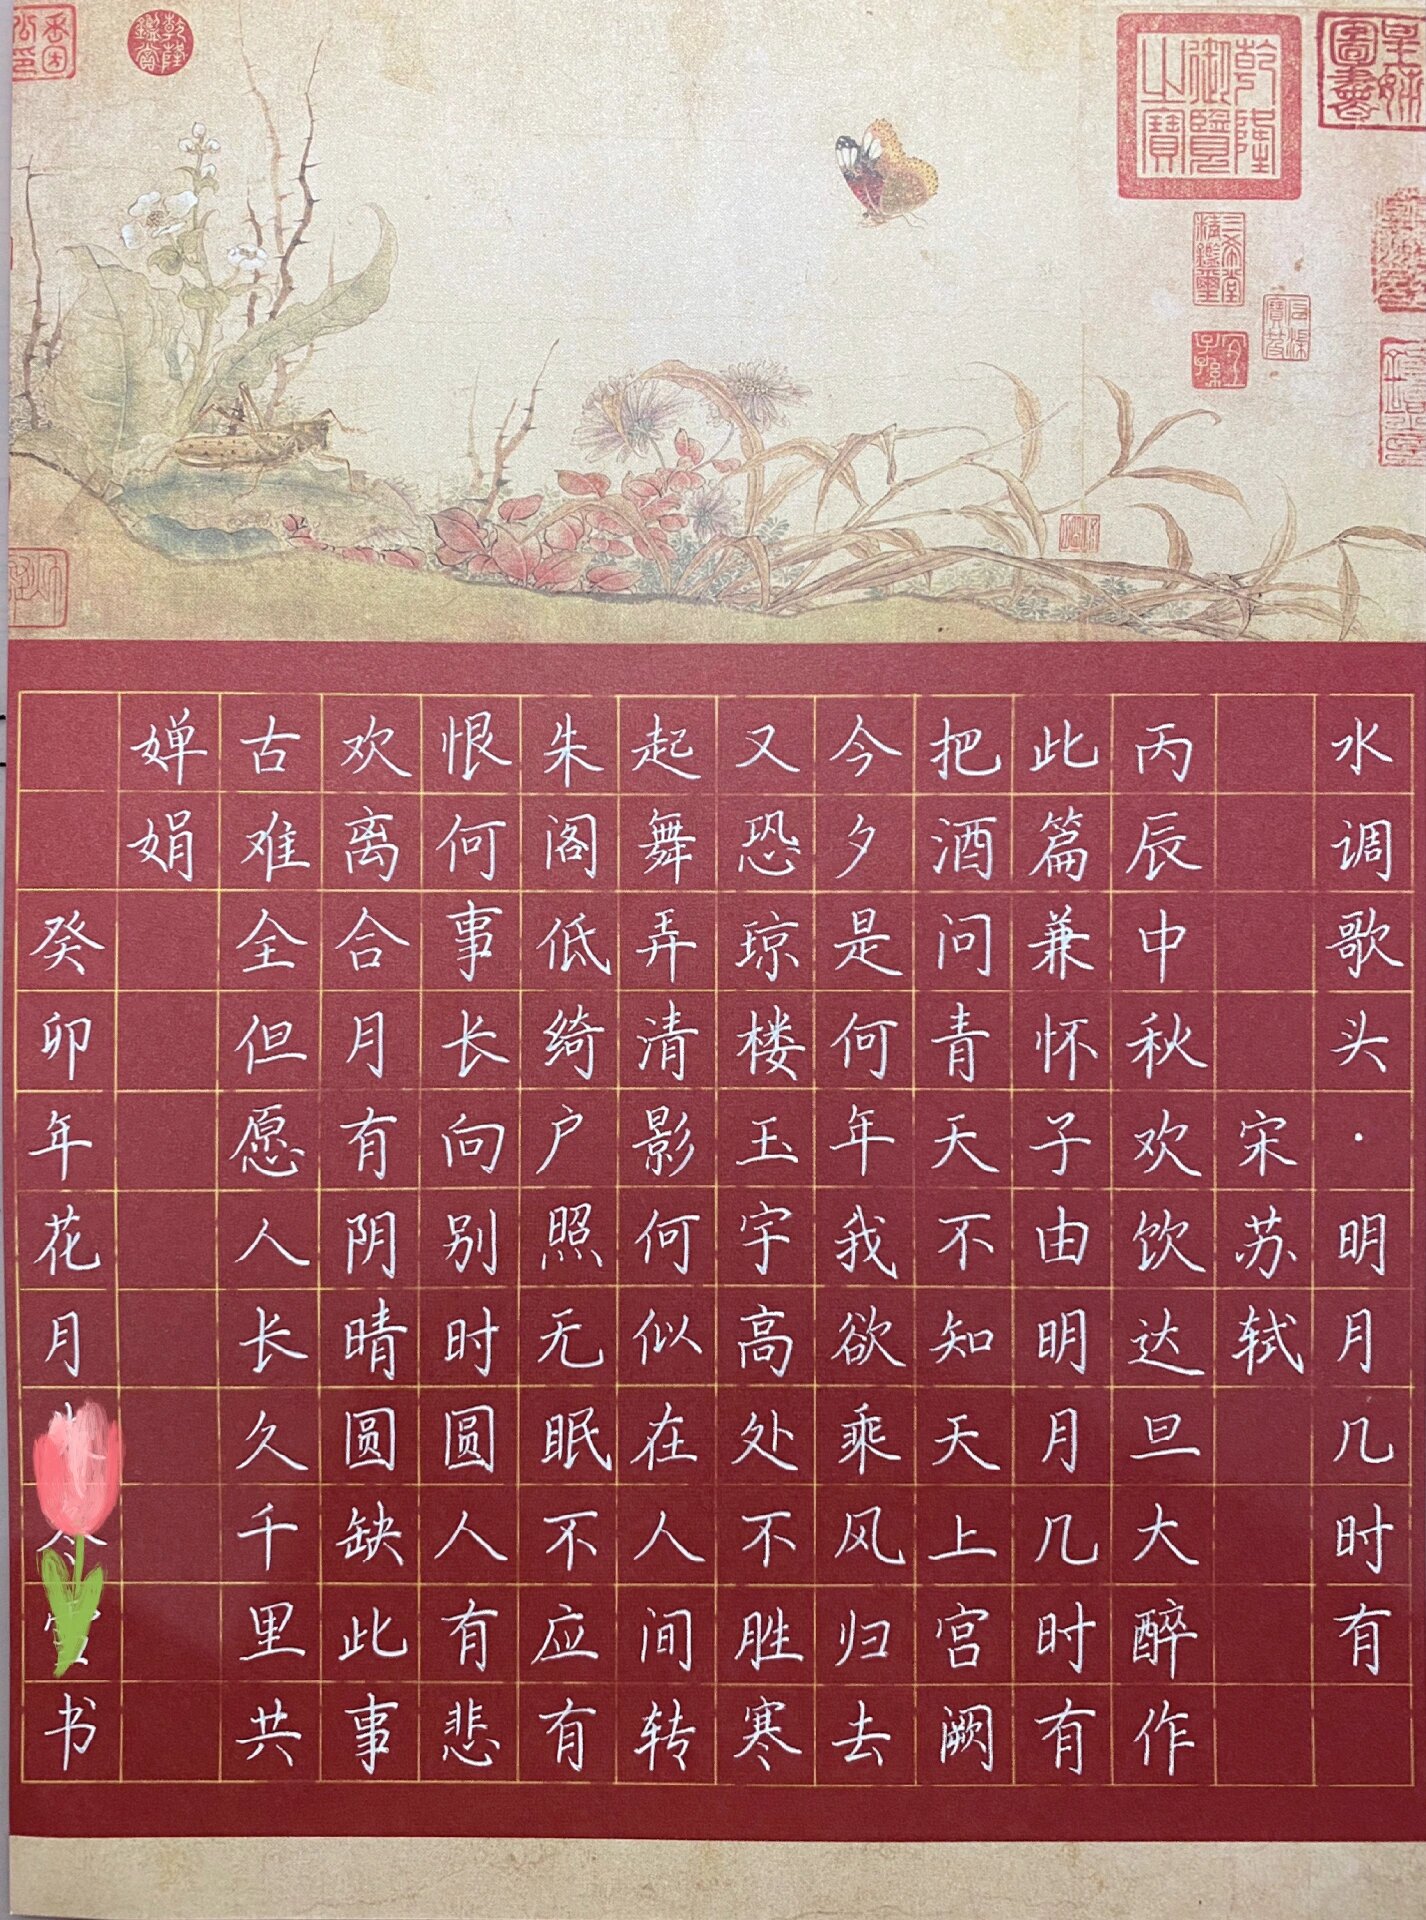 乾隆御覽之寶
三希堂精鑑璽
宜子孫
乾隆鑑賞
水调歌头·明月几时有
宋苏轼
丙辰中秋欢饮达旦大醉作
此篇兼怀子由明月几时有
把酒问青天不知天上宫阙
今夕是何年我欲乘风归去
又恐琼楼玉宇高处不胜寒
起舞弄清影何似在人间转
朱阁低绮户照无眠不应有
恨何事长向别时圆人有悲
欢离合月有阴晴圆缺此事
古难全但愿人长久千里共
婵娟
癸卯年花月书